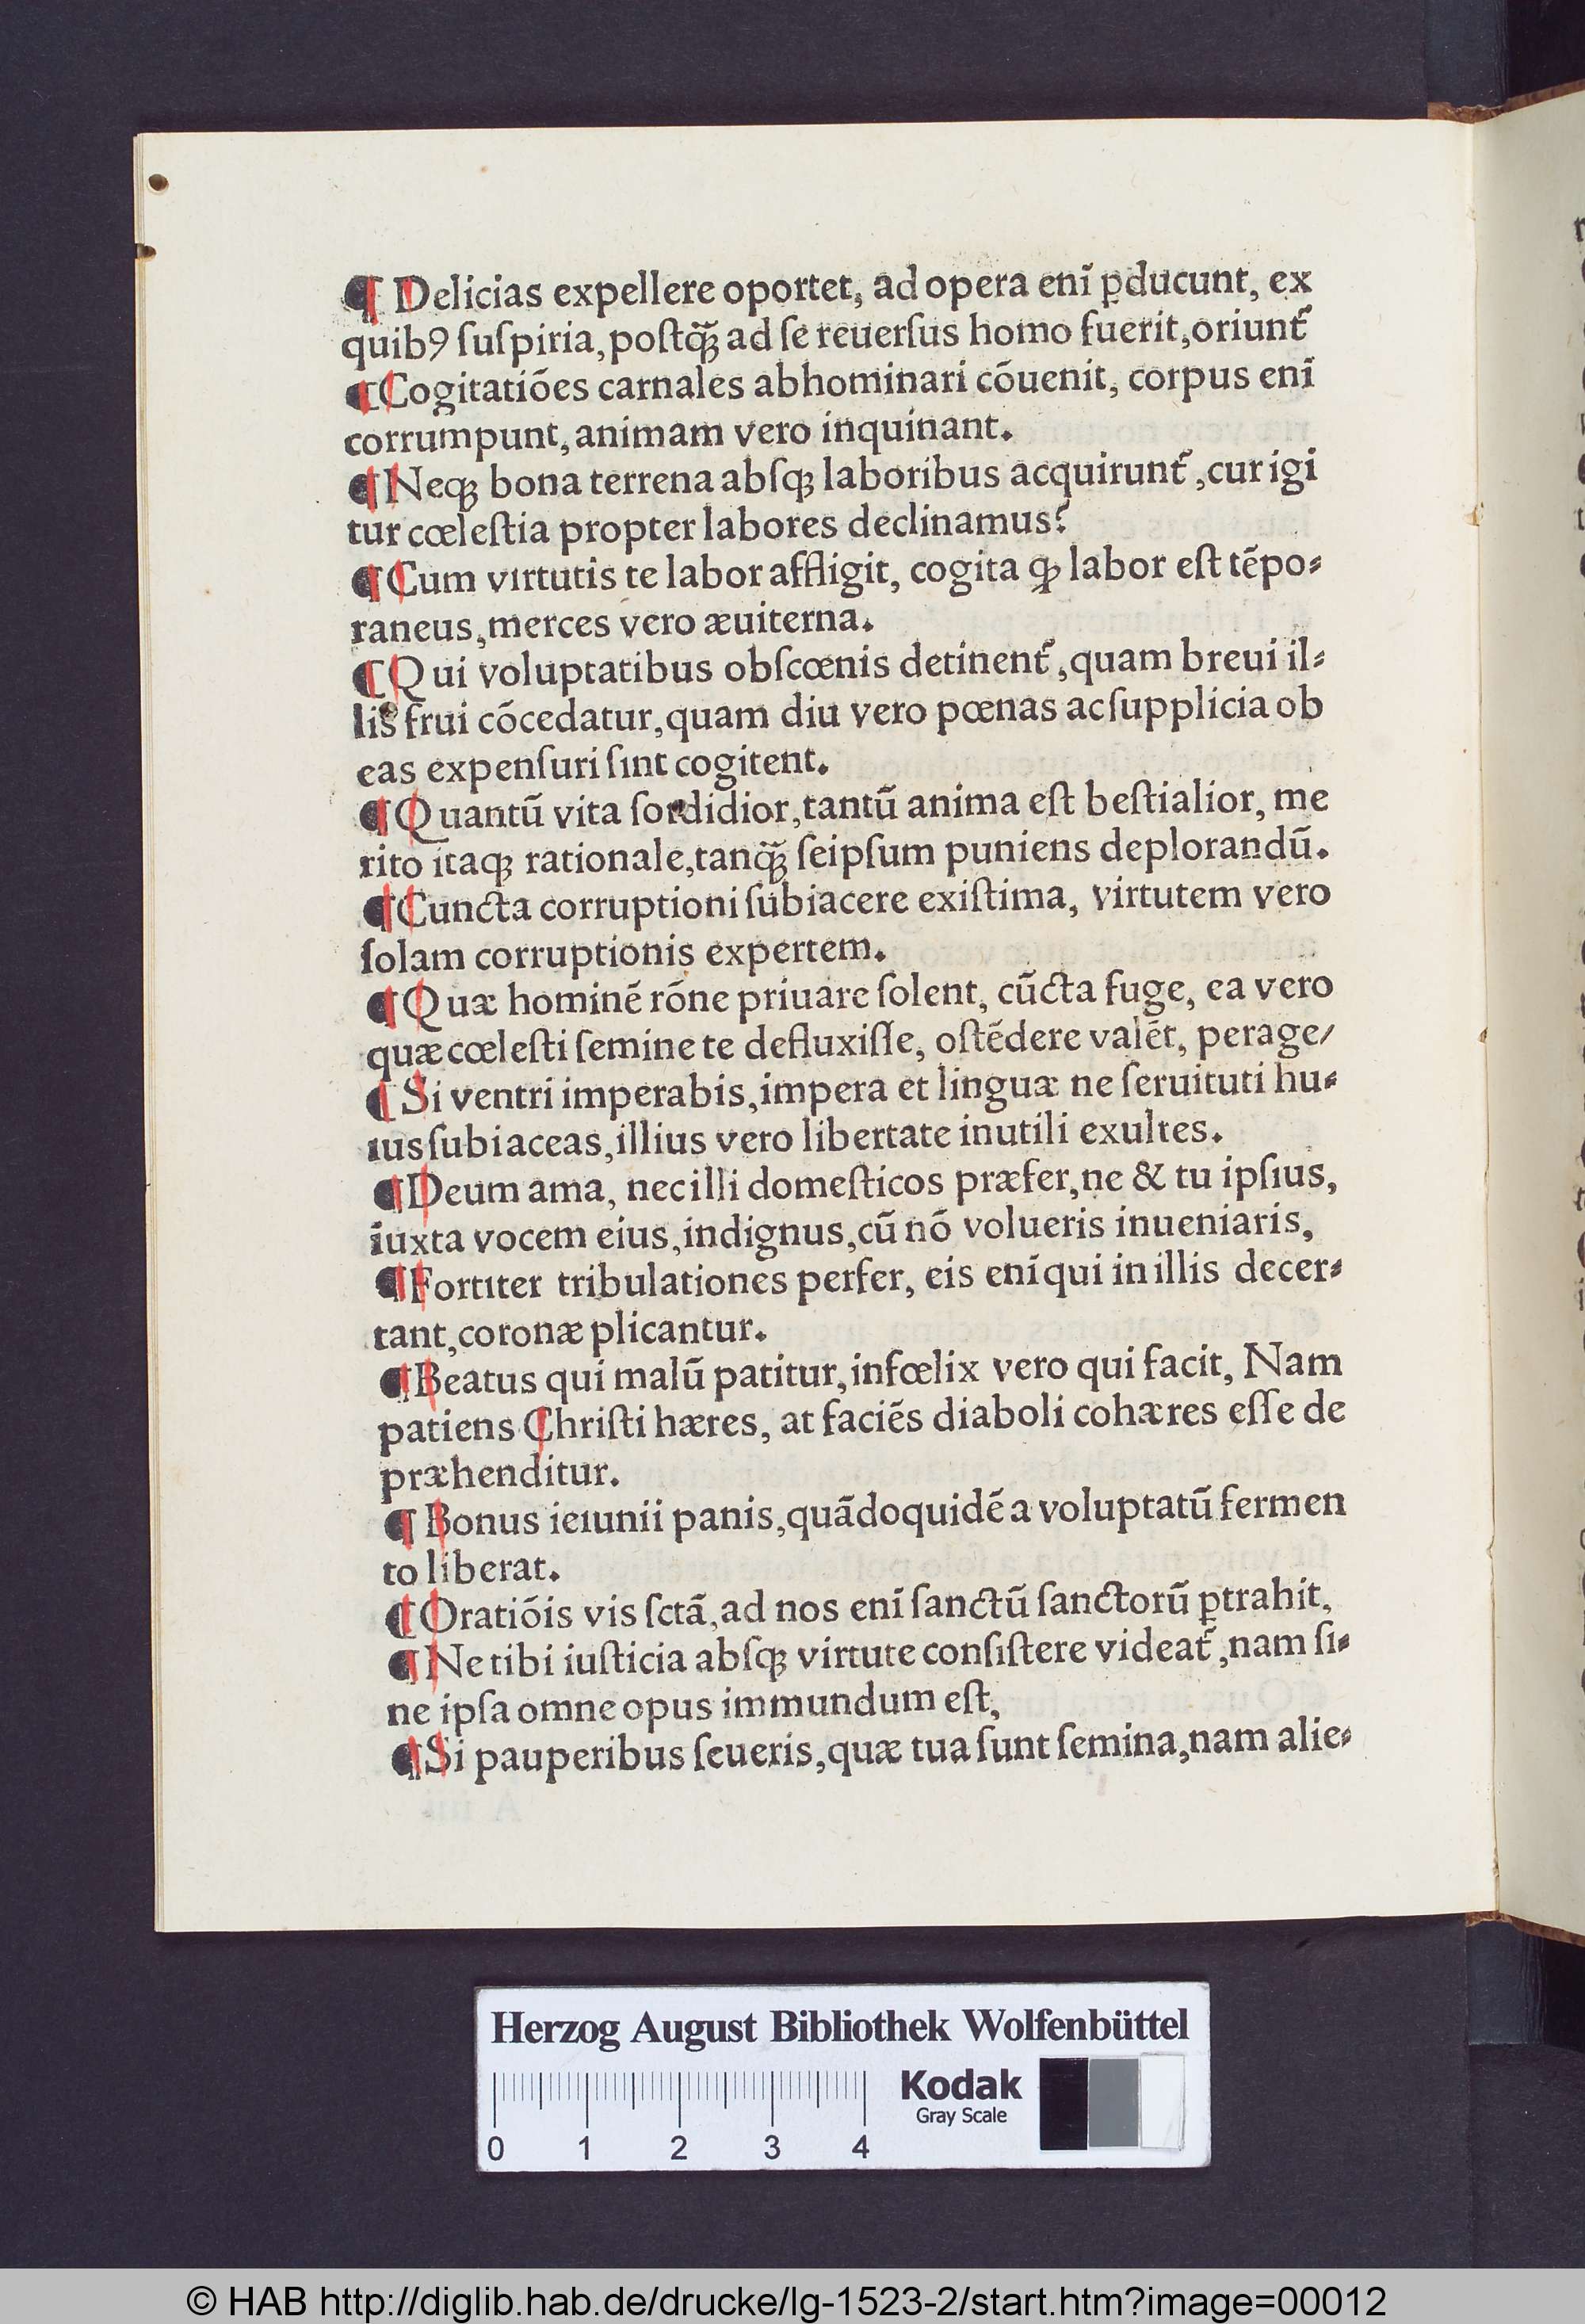 ¶ Delicias expellere oportet, ad opera enī ꝑducunt, ex
quibꝰ ſuſpiria, poſtꝙ̃ ad ſe reuerſus homo fuerit, oriunt᷑
¶ Cogitatiões carnales abhominari cõuenit, corpus enī
corrumpunt, animam vero inquinant.
¶ Neqꝫ bona terrena abſqꝫ laboribus acquirunt᷑, cur igi
tur cœleſtia propter labores declinamus?
¶ Cum virtutis te labor affligit, cogita ꝙ labor eſt tẽpo⸗
raneus, merces vero æuiterna.
¶ Qui voluptatibus obſcœnis detinent᷑, quam breui il⸗
lis frui cõcedatur, quam diu vero pœnas ac ſupplicia ob
eas expenſuri ſint cogitent.
¶ Quantũ vita ſordidior, tantũ anima eſt beſtialior, me
rito itaqꝫ rationale, tanꝙ̃ ſeipſum puniens deplorandũ.
¶ Cuncta corruptioni ſubiacere exiſtima, virtutem vero
ſolam corruptionis expertem.
¶ Quæ hominẽ rõne priuare ſolent, cũcta fuge, ea vero
quæ cœleſti ſemine te defluxiſſe, oſtẽdere valẽt, perage/
¶ Si ventri imperabis, impera et linguæ ne ſeruituti hu⸗
ius ſubiaceas, illius vero libertate inutili exultes.
¶ Deum ama, nec illi domeſticos præfer, ne & tu ipſius,
iuxta vocem eius, indignus, cũ nõ volueris inueniaris,
¶ Fortiter tribulationes perfer, eis enī qui in illis decer⸗
tant, coronæ plicantur.
¶ Beatus qui malũ patitur, infœlix vero qui facit, Nam
patiens Chriſti hæres, at faciẽs diaboli cohæres eſſe de
præhenditur.
¶ Bonus ieiunii panis, quãdoquidẽ a voluptatũ fermen
to liberat.
¶ Oratiõis vis ſctã, ad nos enī ſanctũ ſanctorũ ꝑtrahit,
¶ Ne tibi iuſticia abſqꝫ virtute conſiſtere videat᷑, nam ſi⸗
ne ipſa omne opus immundum eſt,
¶ Si pauperibus ſeueris, quæ tua ſunt ſemina, nam alie⸗
Herzog August Bibliothek Wolfenbüttel
Kodak
Gray Scale
0 1 2 3 4
© HAB http://diglib.hab.de/drucke/lg-1523-2/start.htm?image=00012